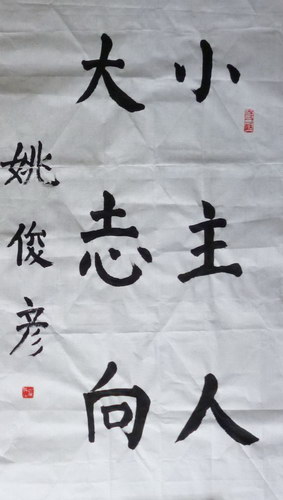 小主人
大志向
姚俊彦